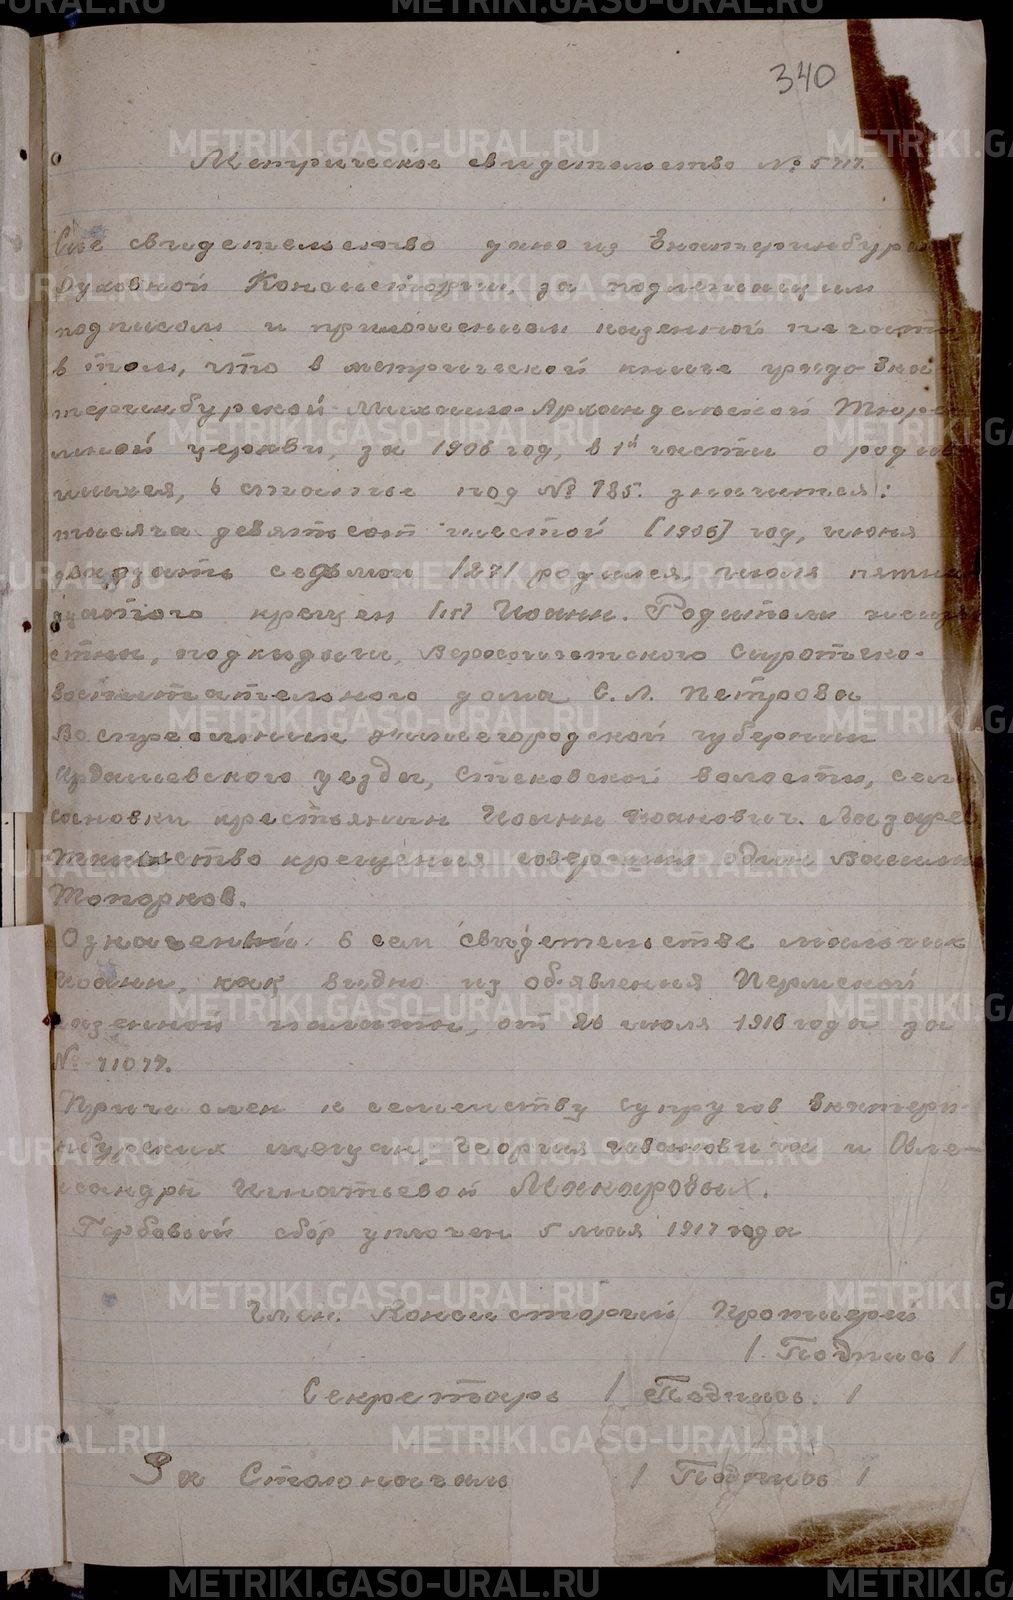 340
Метрическое свидетельство № 5717.
Сие свидетельство дано из Екатеринбург
Духовной Консистории, за подлежащим
подписом и приложением казенной печати
в том, что в метрической книге градо-Ека-
теринбургской Михаило-Архангельской Тюре
мной церкви, за 1906 год, в 1й части о родив
шихся, в статье под № 185. значится:
тысяча девятьсот шестой [1906] год, июня
двадцать седьмой /27/ родился, июля пятна
дцатого крещен /15/ Иоанн. Родители неизв
стны, подкидыш, Верхисетского Сиротско-
воспитательного дома С. Л. Петрова
Восприемник Нижегородской губернии
Ардашевского уезда, Стековской волости, села
сановки крестьянин Иоанн Иоанович. Лазарев
Таинство крещения совершил один Василий
Топорков.
Означенный в сем свидетельстве мальчик
Иоанн, как видно из объявления Пермской
казенной палаты, от 26 июля 1916 года за
№ 11077.
Причислен к семейству супругов Екатери-
нбургских мещан, Георгия Ивановича и Олек-
сандры Игнатьевой Макаровых.
Гербовый сбор уплочен 5 мая 1917 года
Член. Консисторий Протиерей
/. Подпись /
Секретарь / Подпись. /
За Столоначаль / Подпись /
METRIKI.GASO-URAL.RU